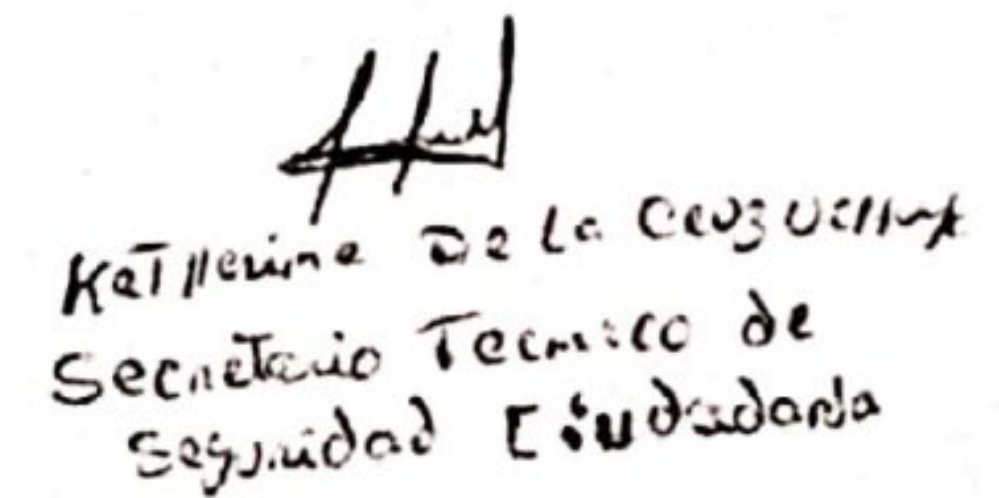 Katherine De la Cruz
Secretario Tecnico de
Seguridad Ciudadana